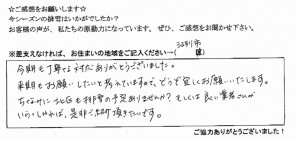 ☆ご感想をお願いします☆
今シーズンの排雪はいかがでしたか?
ご感想が、私たちの原動力になっています。ぜひ、ご感想をお聞かせ下さい。
※差支えなければ、お住まいの地域をご記入ください→(
今期も丁寧な対応ありがとうございました。
来期もお願いしたいと考えていますので、どうぞ宜しくお願いいたします。
ちなみに 北区も排雪の予定ありませんか? もしくは良い業者さんが
いらっしゃれば、是非ご紹介頂きたいです。
ご協力ありがとうございました!